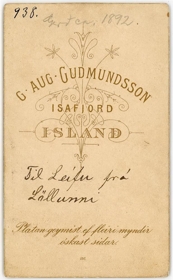 938.
1892.
G. AUG. GUDMUNDSSON
ISAFJORD
ISLAND
Til Leifu frá
Lállunni
Platan geymist ef fleiri myndir
óskast síðar.